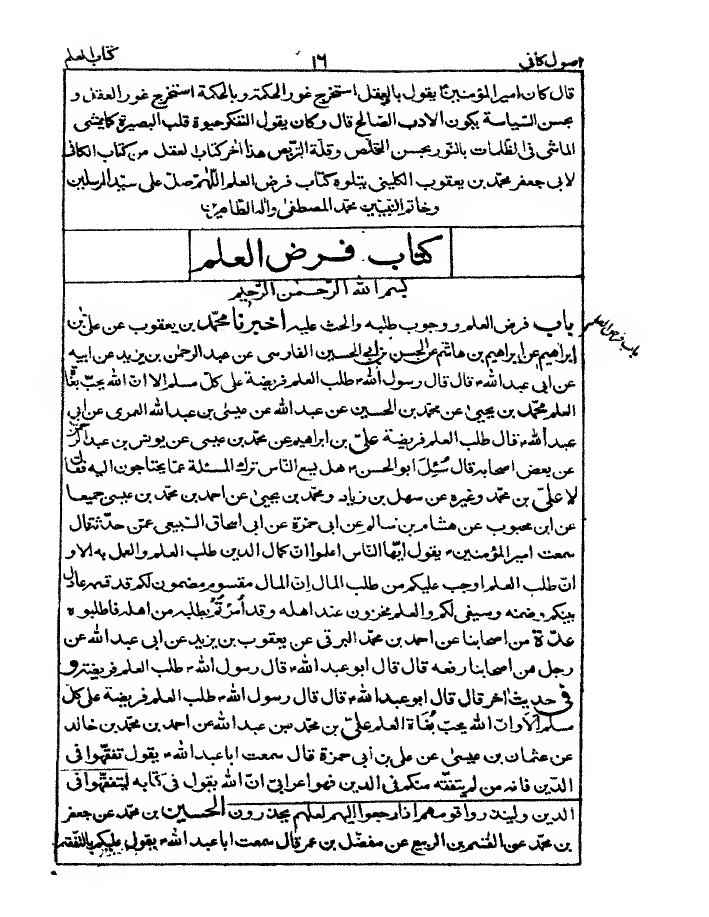 اصول كافى ١٦ كتاب العلم
قال كان امير المؤمنينؑ يقول بالعقل استخرج غور الحكمة و بالحكمة استخرج غور العقل و
بحسن السّياسة يكون الادب الصّالح قال و كان يقول التفكر حيوة قلب البصيرة كما يمشى
الماشى فى الظلمات بالنّور بحسن التخلّص و قلة التربّص هذا اٰخر كتاب العقل من كتاب الكافى
لابى جعفر محمّد بن يعقوب الكلينى يتلوه كتاب فرض العلم اللّهم صلّ على سيّد المرسلين
و خاتم النّبيين محمّد المصطفىٰ و اله الطاهرين
كتاب فرض العلم
بسم الله الرّحمٰن الرّحيم
باب فرض العلم و وجوب طلبه و الحث عليه اخبرنا محمّد بن يعقوب عن علىّ بن
باب فرض العلم
ابراهيم عن ابراهيم بن هاشم عن الحسن بن ابى الحسين الفارسى عن عبد الرحمٰن بن يزيد عن ابيه
عن ابى عبد اللهؑ قال قال رسول اللهؐ طلب العلم فريضة على كلّ مسلم الا انّ الله يحبّ بغاة
العلم محمّد بن يحيىٰ عن محمّد بن الحسين عن عبد الله عن عيسىٰ بن عبد الله العمرى عن ابى
عبد اللهؑ قال طلب العلم فريضة علىّ بن ابراهيم عن محمّد بن عيسى عن يونس بن عبد الرحمٰن
عن بعض اصحابه قال سُئِلَ ابو الحسنؑ هل يسع النّاس ترك المسئلة عمّا يحتاجون اليه فقال
لا علىّ بن محمّد و غيره عن سهل بن زياد و محمّد بن يحيىٰ عن احمد بن محمّد بن عيسى جميعا
عن ابن محبوب عن هشام بن سالم عن ابى حمزة عن ابى اسحاق السّبيعى عمّن حدّثه قال
سمعت امير المؤمنينؑ يقول ايّها النّاس اعلموا انّ كمال الدين طلب العلم و العمل به الا و
انّ طلب العلم اوجب عليكم من طلب المال انّ المال مقسوم مضمون لكم قد قسمه عادل
بينكم و ضمنه و سيفى لكم و العلم مخزون عند اهله و قد اُمِرْتُم بطلبه من اهله فاطلبوه
عدّة من اصحابنا عن احمد بن محمّد البرقى عن يعقوب بن يزيد عن ابى عبد الله عن
رجل من اصحابنا رفعه قال قال ابو عبد اللهؑ قال رسول اللهؐ طلب العلم فريضة و
فى حديث اٰخر قال قال ابو عبد اللهؑ قال قال رسول اللهؐ طلب العلم فريضة على كلّ
مسلم اَلا و انّ الله يحبّ بُغَاة العلم علىّ بن محمّد بن عبد الله عن احمد بن محمّد بن خالد
عن عثمان بن عيسىٰ عن على بن ابى حمزة قال سمعت ابا عبد اللهؑ يقول تفقّهوا فى
الدّين فانه من لم يتفقّه منكم فى الدين فهو اعرابى انّ الله يقول فى كتابه ليتفقّهوا فى
الدين و لينذروا قومهم اذا رجعوا اليهم لعلهم يحذرون الحسين بن محمّد عن جعفر
بن محمّد عن القسم بن الربيع عن مفضّل بن عمر قال سمعت ابا عبد اللهؑ يقول عليكم بالتفقه